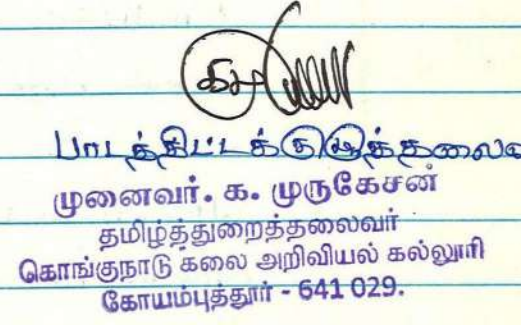 பாடத்திட்டக்குழுத்தலைவ
முனைவர். க. முருகேசன்
தமிழ்த்துறைத்தலைவர்
கொங்குநாடு கலை அறிவியல் கல்லூரி
கோயம்புத்தூர் - 641 029.